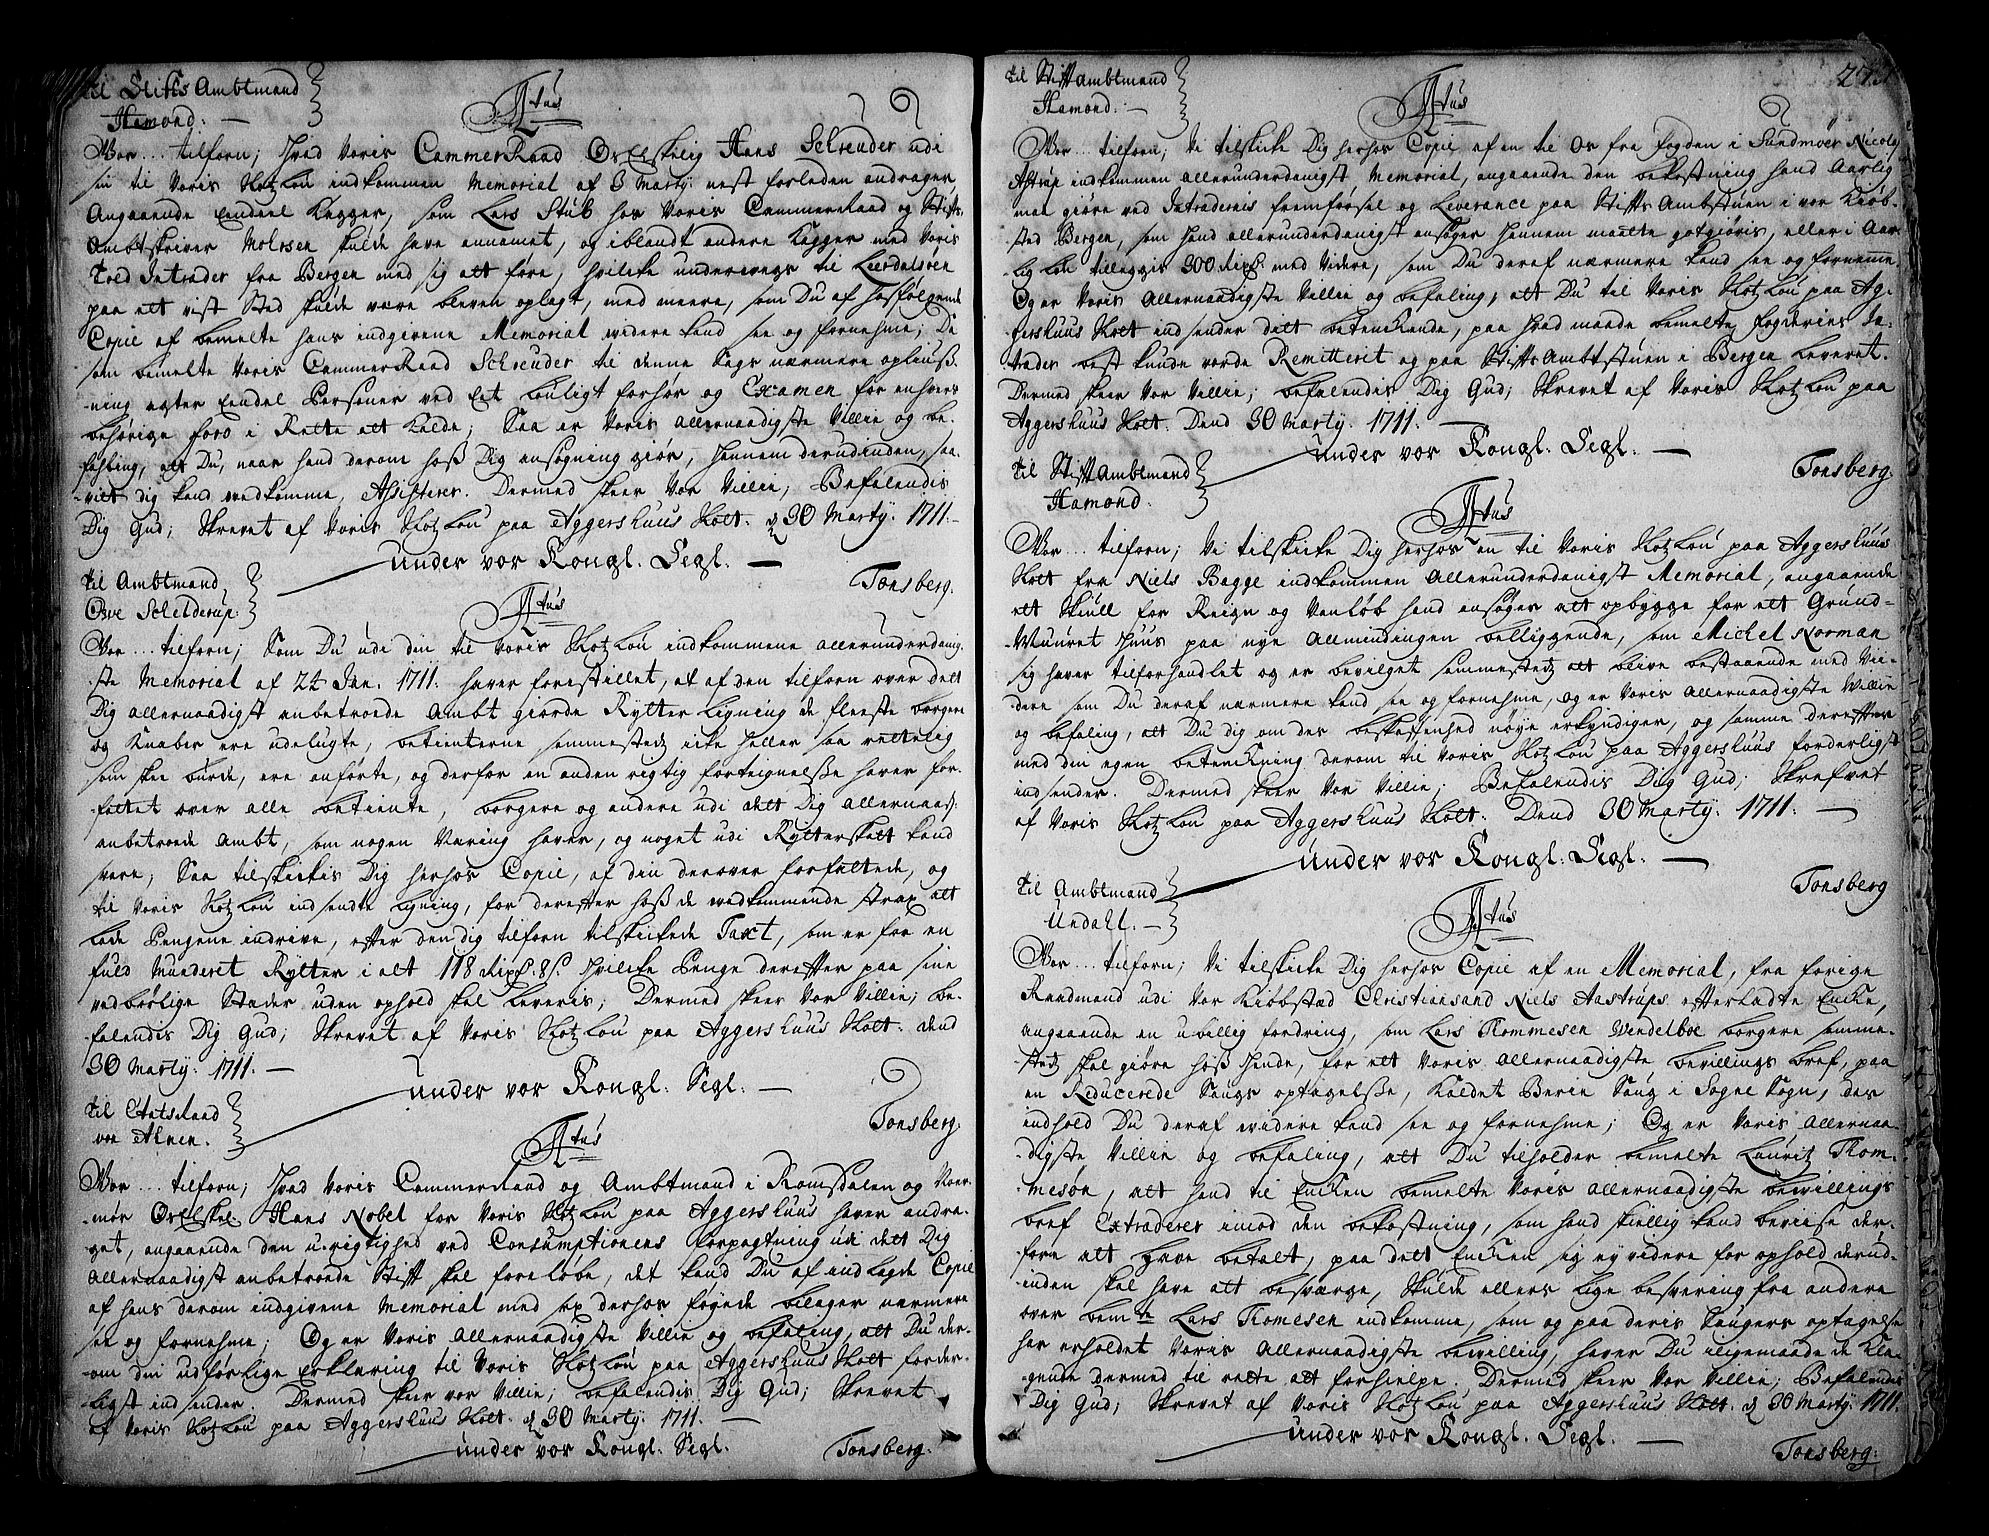 til Stifts Ambtmand
Hamond: —
Ftus
Vor... tilforn; Hvad Voris CammerRaad OsElskelig Hans Schreuder udi
sin til Voris Slotzlou indkommen Memorial af 3 Martij nest forleden andrager,
Angaaende Eendeel Kagger, som Lars Stub hos Voris Cammerraad og Stifts
Ambtskriver Mohrsen skulde have annamet, og iblandt andere Kagger med Voris
Told Intrader fra Bergen med sig att føre, hvilcke underwegs til Leerdalsøen
paa ett vist Sted skulde være bleven oplagt, med meere, som Du af hosfølgende
Copie af bemelte hans indgivene Memorial widere kand see og fornehme; Da
som bemelte Voris CammerRaad Schreuder til denne Sags nærmere opliuss-
-ning agter Eendel Persohner ved Eet louligt forhør og Examen for enhvers
behørige foro i Rette att kalde; Saa er Voris allernaadigste Villie og be-
fahling, att Du, naar hand derom hoss Dig ansøgning giør, hannem derudinden, saa-
-vit dig kand vedkomme, Assisterer. Dermed skeer Vor Villie, Befalendis
Dig Gud; Skrevet af Voris Slotzlou paa Aggershuus Slott. d 30 Martij. 1711.
under vor Kongl. Segl. —
Tonsberg.
til Ambtmand
Ove Schelderup.
Ftus
Vor... tilforn; Som Du udi din til Voris Slotzlou indkommene allerunderdanig-
-ste Memorial af 24 Jan. 1711. haver forestillet, at af den tilforn over dett
Dig allernaadigst anbetroede Ambt giorde Rytter Ligning de fleeste borgere
og Knaber ere udelugte, betienterne sammestedz icke heller saa rettelig
som skee burde, ere anførte, og derfor en anden rigtig fortegnelsse haver for-
-fattet over alle betiente, borgere og andere udi dett Dig Allernaad:
anbetroede Ambt, som nogen Næring haver, og noget udi Rytterskatt kand
svare; Saa tilskickis Dig herhos Copie, af din derover forfattede, og
til Voris Slotzlou indsendte Ligning, for derefter hoss de wedkommende strax att
lade Pengene indrive, efter den dig tilforn tilskickede Taxt, som er for en
fuld Munderet Rytter i alt 118 Rixd. 8 s. Hvilcke Penge derefter paa sine
vedbørlige Stæder uden ophold skal Leveris; Dermed skeer Vor Villie; be-
falendis Dig Gud; Skrevet af Voris Slotzlou paa Aggershuus Slott. Dend
30 Martij. 1711. —
under vor Kongl. Segl. —
Tonsberg.
til Etatsraad
von Ahnen.
Ftus
Vor... tilforn; Hvad Voris Cammerraad og Ambtmand i Romsdalen og Noer-
-mør OsElskel. Hans Nobel for Voris Slotzlou paa Aggershuus haver andra-
get, angaaende den u-rigtighed ved Consumptionens forpagtning udi dett Dig
Allernaadigst anbetroede Stift skal foreløbe, det kand Du af indlagde Copie
af hans derom indgivene Memorial med sex derhos føyede bilager nærmere
see og fornehme; Og er Voris Allernaadigste Villie og befaling, att Du der-
-om din udførlige Erklæring til Voris Slotzlou paa Aggershuus Slott forder-
-ligst indsender. Dermed skeer vor Villie; befalendis Dig Gud; Skrevet
af Voris Slotzlou paa Aggershuus Slott. d 30 Martij. 1711. —
under vor Kongl. Segl.
Tonsberg.
til Stiftambtmand
Hamond: —
Ftus
Vor... tilforn; Vi tilskicke Dig herhos Copie af en til Os fra fogden i Sundmøer Nicolaj
Astrup indkommen allerunderdanigst Memorial, angaaende den bekostning hand Aarlig
maa giøre ved Intradernis fremførsel og Leverance paa Stifts Ambstuen i vor Kiøb-
-sted Bergen, som hand allerunderdanigst ansøger hannem maatte gotgiøris, eller i Aar-
-lig løn tilleggis 300 Rixd. med Videre, som Du deraf nærmere kand see og fornemme.
Og er Voris Allernaadigste Villie og befaling, att Du til Voris Slotzlou paa Ag-
gershuus Slott indsender ditt betenckende, paa hvad maade bemelte fogderies In-
trader best kunde vorde Remitterit og paa StiftsAmbtstuen i Bergen Leveret.
Dermed skeer Vor Villie; befalendis Dig Gud; Skrevet af Voris Slotzlou paa
Aggershuus Slott. Dend 30 Martij. 1711. —
under vor Kongl. Segl. —
Tonsberg.
til Stiftambtmand
Hamond.
Ftus
Vor... tilforn; Vi tilskicke Dig herhos en til Voris Slotzlou paa Aggershuus
Slott fra Niels Bagge indkommen Allerunderdanigst Memorial, angaaende
ett Skull for Reign og Vanløb hand ansøger att opbygge for ett Grund-
-Muuret Huus paa nye Allmindingen belliggende, som Michel Norman
sig haver tilforhandlet og er bevilget sammestedz att blive bestaaende med Vii-
dere som Du deraf nærmere kand see og fornehme, og er Voris Allernaadigste Villie
og befaling, att Du dig om des beskaffenhed nøye erkyndiger, og samme derefter
med din egen betenckning derom til Voris Slotzlou paa Aggershuus forderligst
indsender. Dermed skeer Vor Villie; Befalendis Dig Gud; Skrefvet
af Voris Slotzlou paa Aggershuus Slott. Dend 30 Martij. 1711. —
under vor Kongl. Segl. —
Tonsberg
til Ambtmand
Undahl. —
Ftus
Vor... tilforn; Vi tilskicke Dig herhos Copie af en Memorial, fra forige
Raadmand udi Vor Kiøbstæd Christiansand Niels Aastrups efterladte Encke,
angaaende en ubillig fordring, som Lars Thommesen Wendelboe borgere samme-
-stedz skal giøre hoss Hende, for ett Voris Allernaadigste bevillings bref, paa
en Reducerede Saugs optagelsse, kaldet Berie Saug i Sogne Sogn, des
indhold Du deraf widere kand see og fornehme; Og er Voris Allernaa-
-digste Villie og befaling, att Du tilholder bemelte Lauritz Thom-
-mesøn, att hand til Encken bemelte Voris Allernaadigste bewillings
bref Extraderer imod den bekostning, som hand skiellig kand beviise der-
-fore att have betalt, paa dett Encken sig ey videre for ophold derud-
-inden skal have att besværge, Skulde ellers lige besvering fra andere
over bemte Lars Thomesen indkomme, som og paa deris Saugers optagelse
har erholdet Voris Allernaadigste bewilling, haver Du iligemaade de Kla-
-gende dermed til rette att forhielpe. Dermed skeer Vor Villie; Befalendes
Dig Gud; Skrevet af Voris Slotzlou paa Aggershuus Slott. d 30 Martij 1711.
under vor Kongl. Segl. —
Tonsberg.